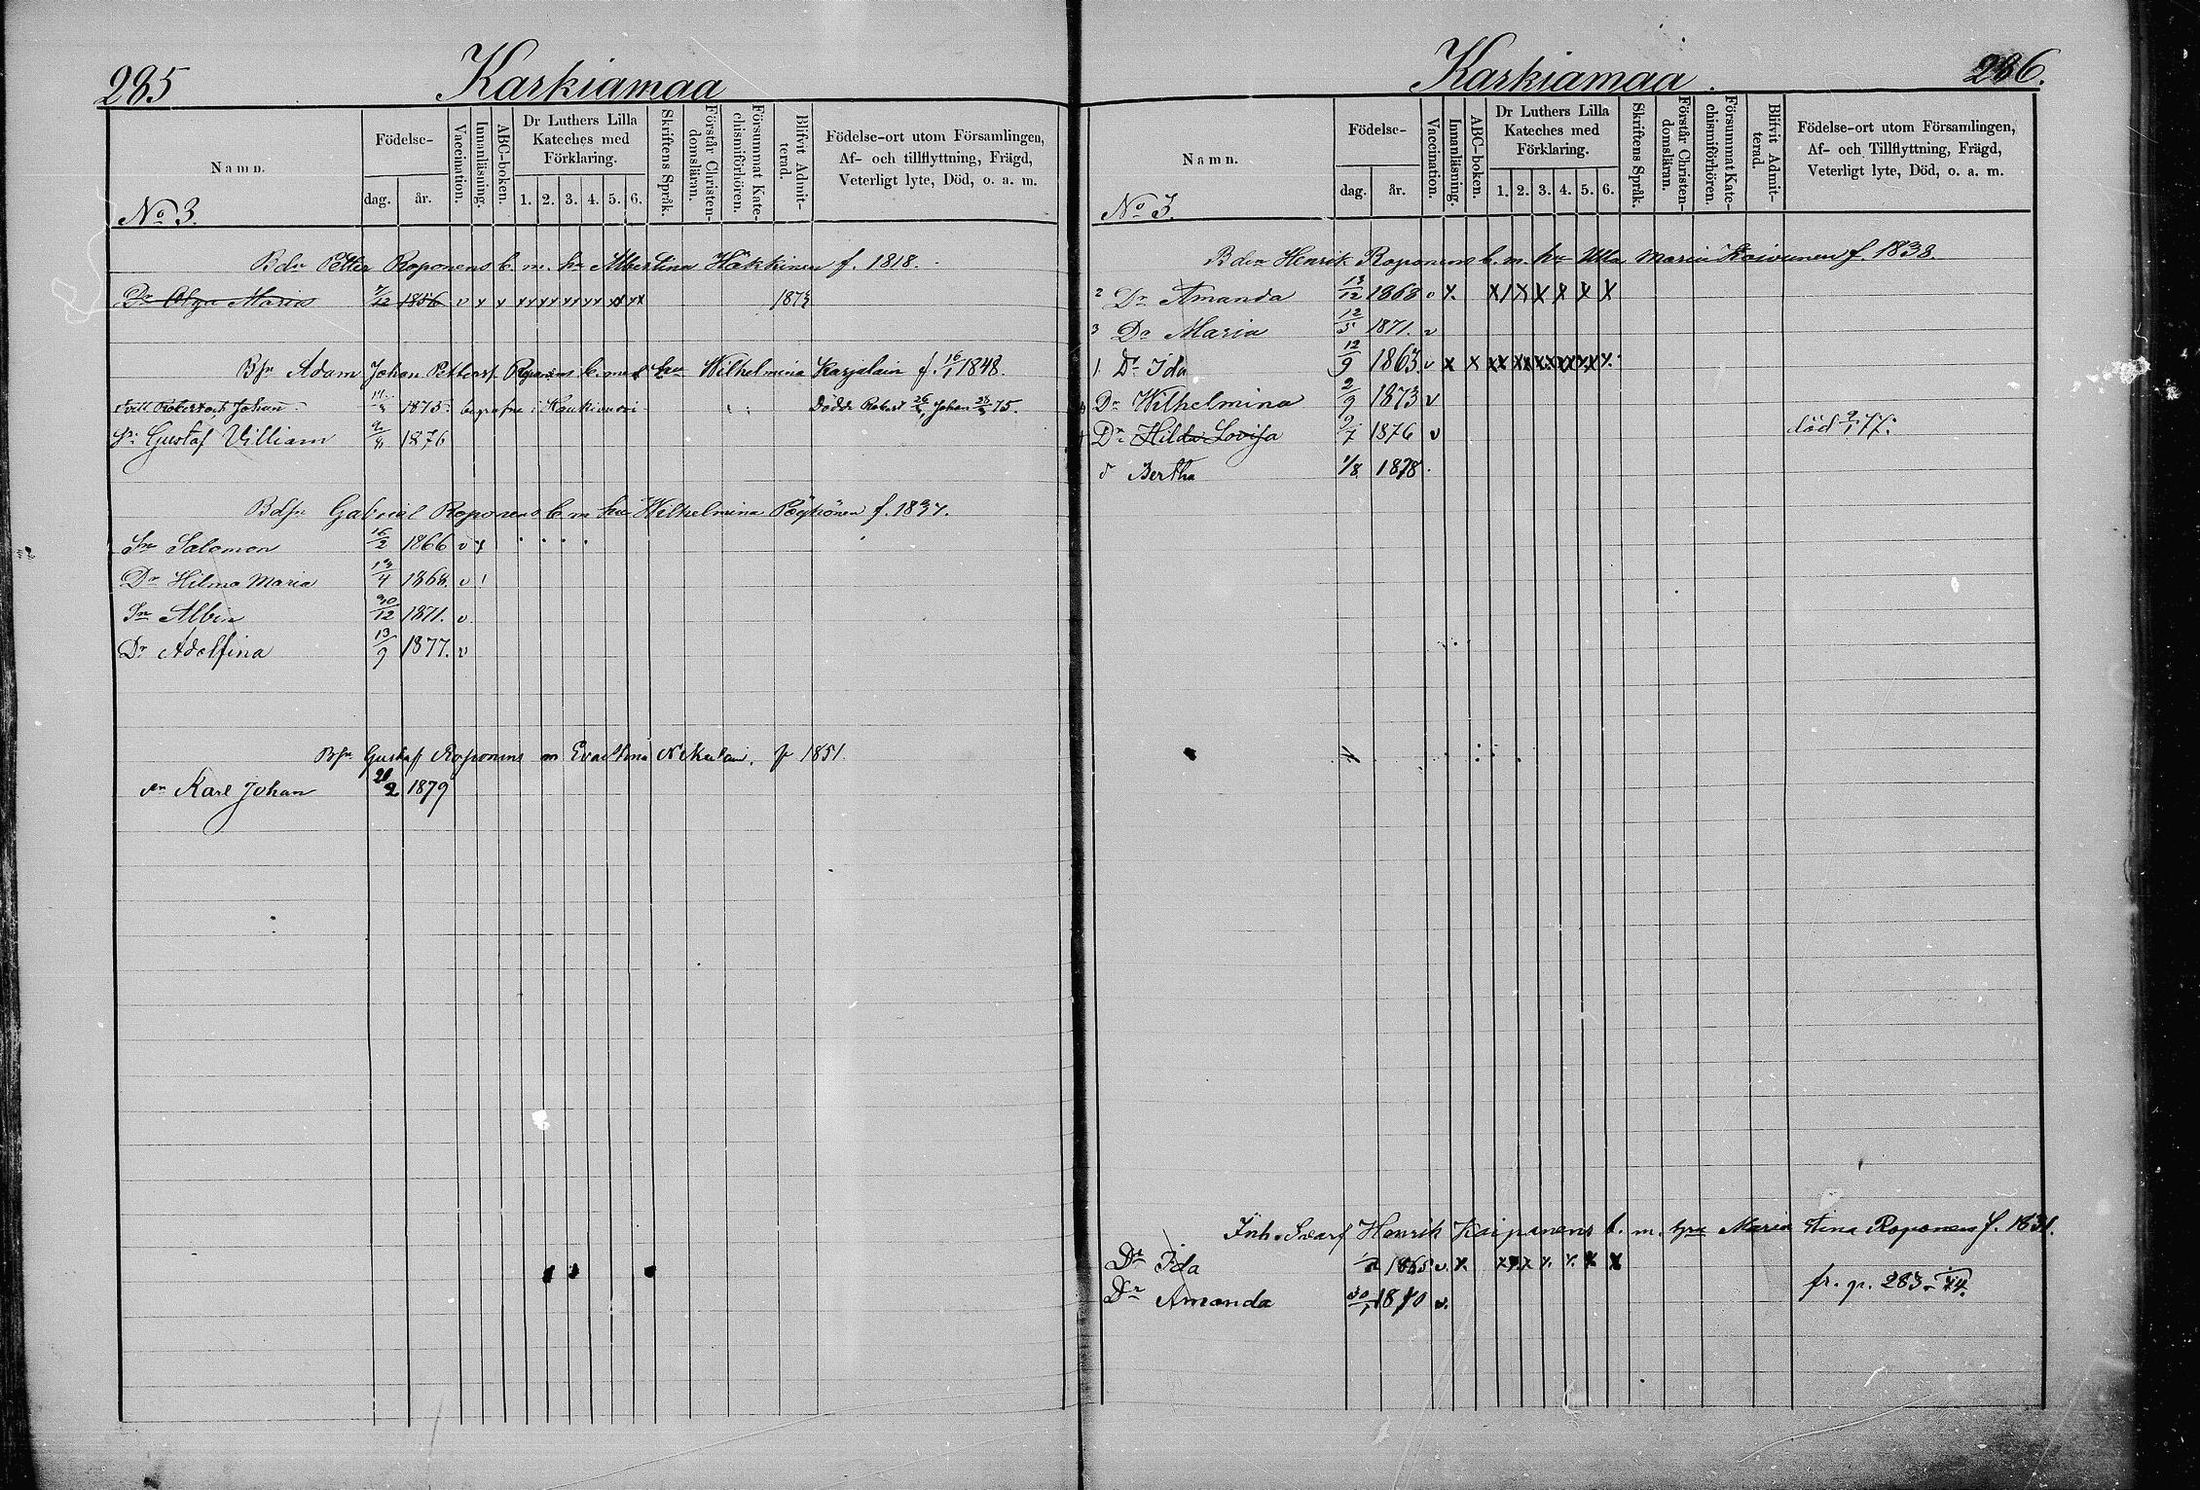 285
Karkiamaa
Namn.
Födelse-
dag.
år.
Vaccination.
Innanläsning.
ABC-boken.
Dr Luthers Lilla
Kateches med
Förklaring.
1. 2. 3. 4. 5. 6.
Skriftens Språk.
Förstår Christen-
domsläran.
Försummat Kate-
chismiförhören.
Blifvit Admit-
terad.
Födelse-ort utom Församlingen,
Af- och tillflyttning, Frägd,
Veterligt lyte, Död, o. a. m.
No 3.
Bdn Petter Roponens b. m. hu Albertina Häkkinen f. 1818.
Dr Olga Maria 7/12 1856 v x x xx xx xx xx xx xx 1873
Bsn Adam Johan Petterss. Roponens b. med hu Wilhelmina Karjalain f. 16/1 1848.
Robert och Johan 1875 begrafne i Kaukiomäki Dödde Robert Johan 75.
Sn Gustaf Villiam 2/8 1876
Bdsn Gabriel Roponens b m hu Wilhelmina Pöyhönen f. 1837.
Sn Salomon 16/2 1866 v x
Dr Hilma Maria 13/4 1868. v
Sn Albin 30/12 1871. v
Dr Adolfina 13/9 1877. v
Bsn Gustaf Roponens m Eva Stina f 1851.
sn Karl Johan 21/2 1879
Karkiamaa.
286.
Namn.
Födelse-
dag.
år.
Vaccination.
Innanläsning.
ABC-boken.
Dr Luthers Lilla
Kateches med
Förklaring.
1. 2. 3. 4. 5. 6.
Skriftens Språk.
Förstår Christen-
domsläran.
Försummat Kate-
chismiförhören.
Blifvit Admit-
terad.
Födelse-ort utom Församlingen,
Af- och Tillflyttning, Frägd,
Veterligt lyte, Död, o. a. m.
No 3.
Bdn Henrik Roponens b. m. hu Ulla Maria Koivunen f. 1838.
2 Dr Amanda 13/12 1868 v x. x x x x x x
3 Dr Maria 12/5 1871. v
1 Dr Ida 12/9 1863. v x x xx xx xx xx x.x x.
Dr Wilhelmina 2/9 1873 v
Dr Hilda Lovisa 9/7 1876 v död 2/1 77.
d Bertha 1/8 1878.
Inh. Svarf Henrik Koiponens b. m. hu Maria Stina Roponens f. 1831.
Dr Ida 1865 v. x. x x x x. x. x x
Dr Amanda 30/1 1870 v. fr. p. 283 - 74.